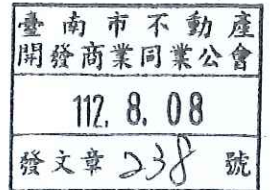 臺南市不動產
開發商業同業公會
112. 8. 08
發文章238號